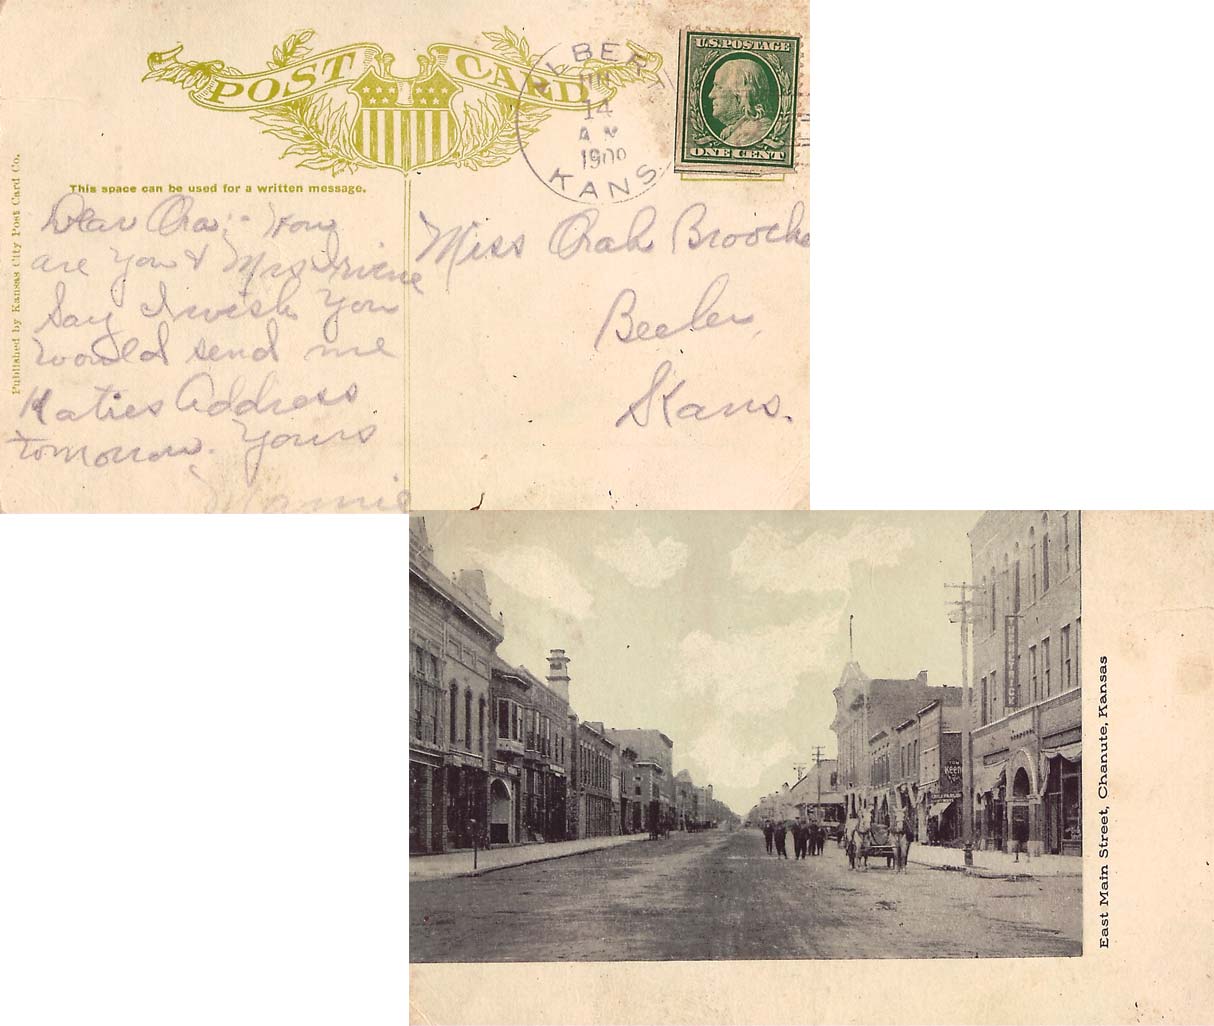 POST CARD
ALBERT
14
A M
1900
KANS
U.S. POSTAGE
ONE CENT
This space can be used for a written message.
Published by Kansas City Post Card Co.
Dear Ora:- How
are you & Mrs
Say I wish you
would send me
Katies Address
tomorrow. Yours
Mamie
Miss Orah
Beeler,
Kans.
KEEN
East Main Street, Chanute, Kansas